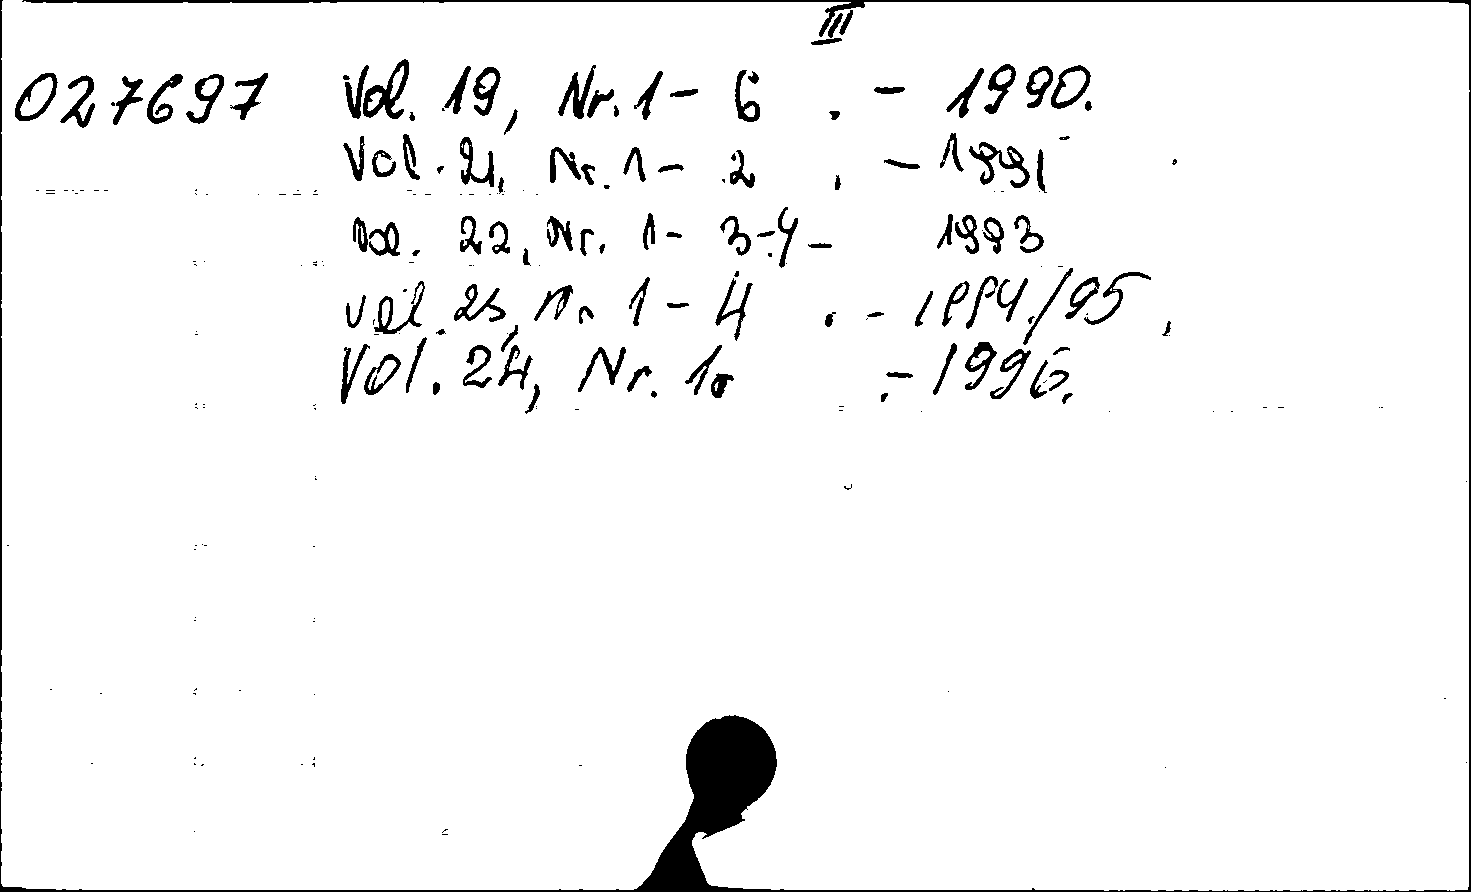 III
027697 Vol. 19, Nr. 1 - 6 . - 1990.
Vol. 21, Nr. 1 - 2 . - 1991
Vol. 22, Nr. 1 - 3-4 - 1993
Vol. 23, Nr 1 - 4 . - 1994/95.
Vol. 24, Nr. 1. .- 1996.